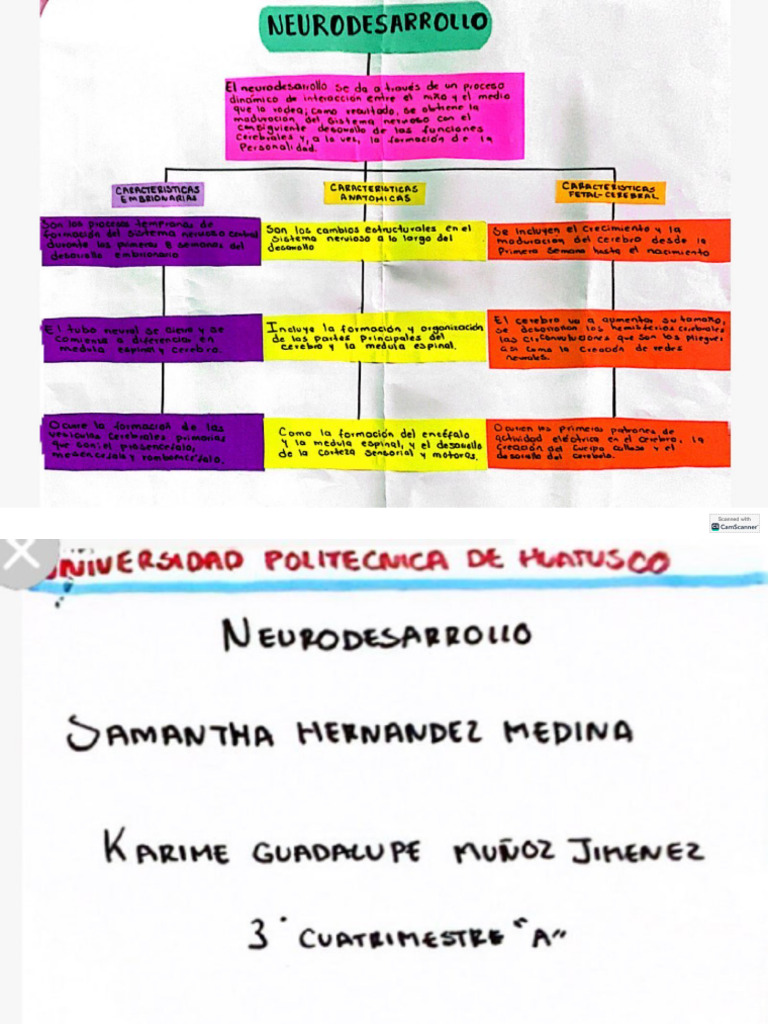 NEURODESARROLLO
El neurodesarrollo se da a través de un proceso
dinámico de interacción entre el niño y el medio
que lo rodea; como resultado, se obtiene la
maduración del Sistema nervioso con el
consiguiente desarrollo de las funciones
cerebrales y, a la vez, la formación de la
Personalidad.
CARACTERISTICAS
EMBRIONARIAS
CARACTERISTICAS
ANATOMICAS
CARACTERISTICAS
FETAL-CEREBRAL
Son los procesos tempranos de
formación del sistema nervioso central
durante las primeras 8 semanas del
desarrollo embrionario
Son los cambios estructurales en el
Sistema nervioso a lo largo del
desarrollo
Se incluyen el crecimiento y la
maduración del cerebro desde la
Primera Semana hasta el nacimiento
El tubo neural se cierre y se
comienza a diferenciar en
medula espinal y cerebro.
Incluye la formación y organización
de las partes principales del
cerebro y la medula espinal.
El cerebro va a aumentar su tamaño,
se desarrollan los hemisferios cerebrales
las circonvoluciones que son los pliegues
asi como la creación de redes
neurales.
Ocurre la formación de las
vesiculas cerebrales primarias
que son: el prosencefalo,
mesencefalo y rombencefalo.
Como la formación del encéfalo
y la medula espinal, y el desarollo
de la corteza sensorial y motoras.
Ocurren los primeros patrones de
actividad eléctrica en el cerebro, la
creación del cuerpo calloso y el
desarollo del cerebelo.
Scanned with
CS CamScanner
UNIVERSIDAD POLITECNICA DE HUATUSCO
NEURODESARROLLO
SAMANTHA HERNANDEZ MEDINA
KARIME GUADALUPE MUÑOZ JIMENEZ
3° CUATRIMESTRE "A"